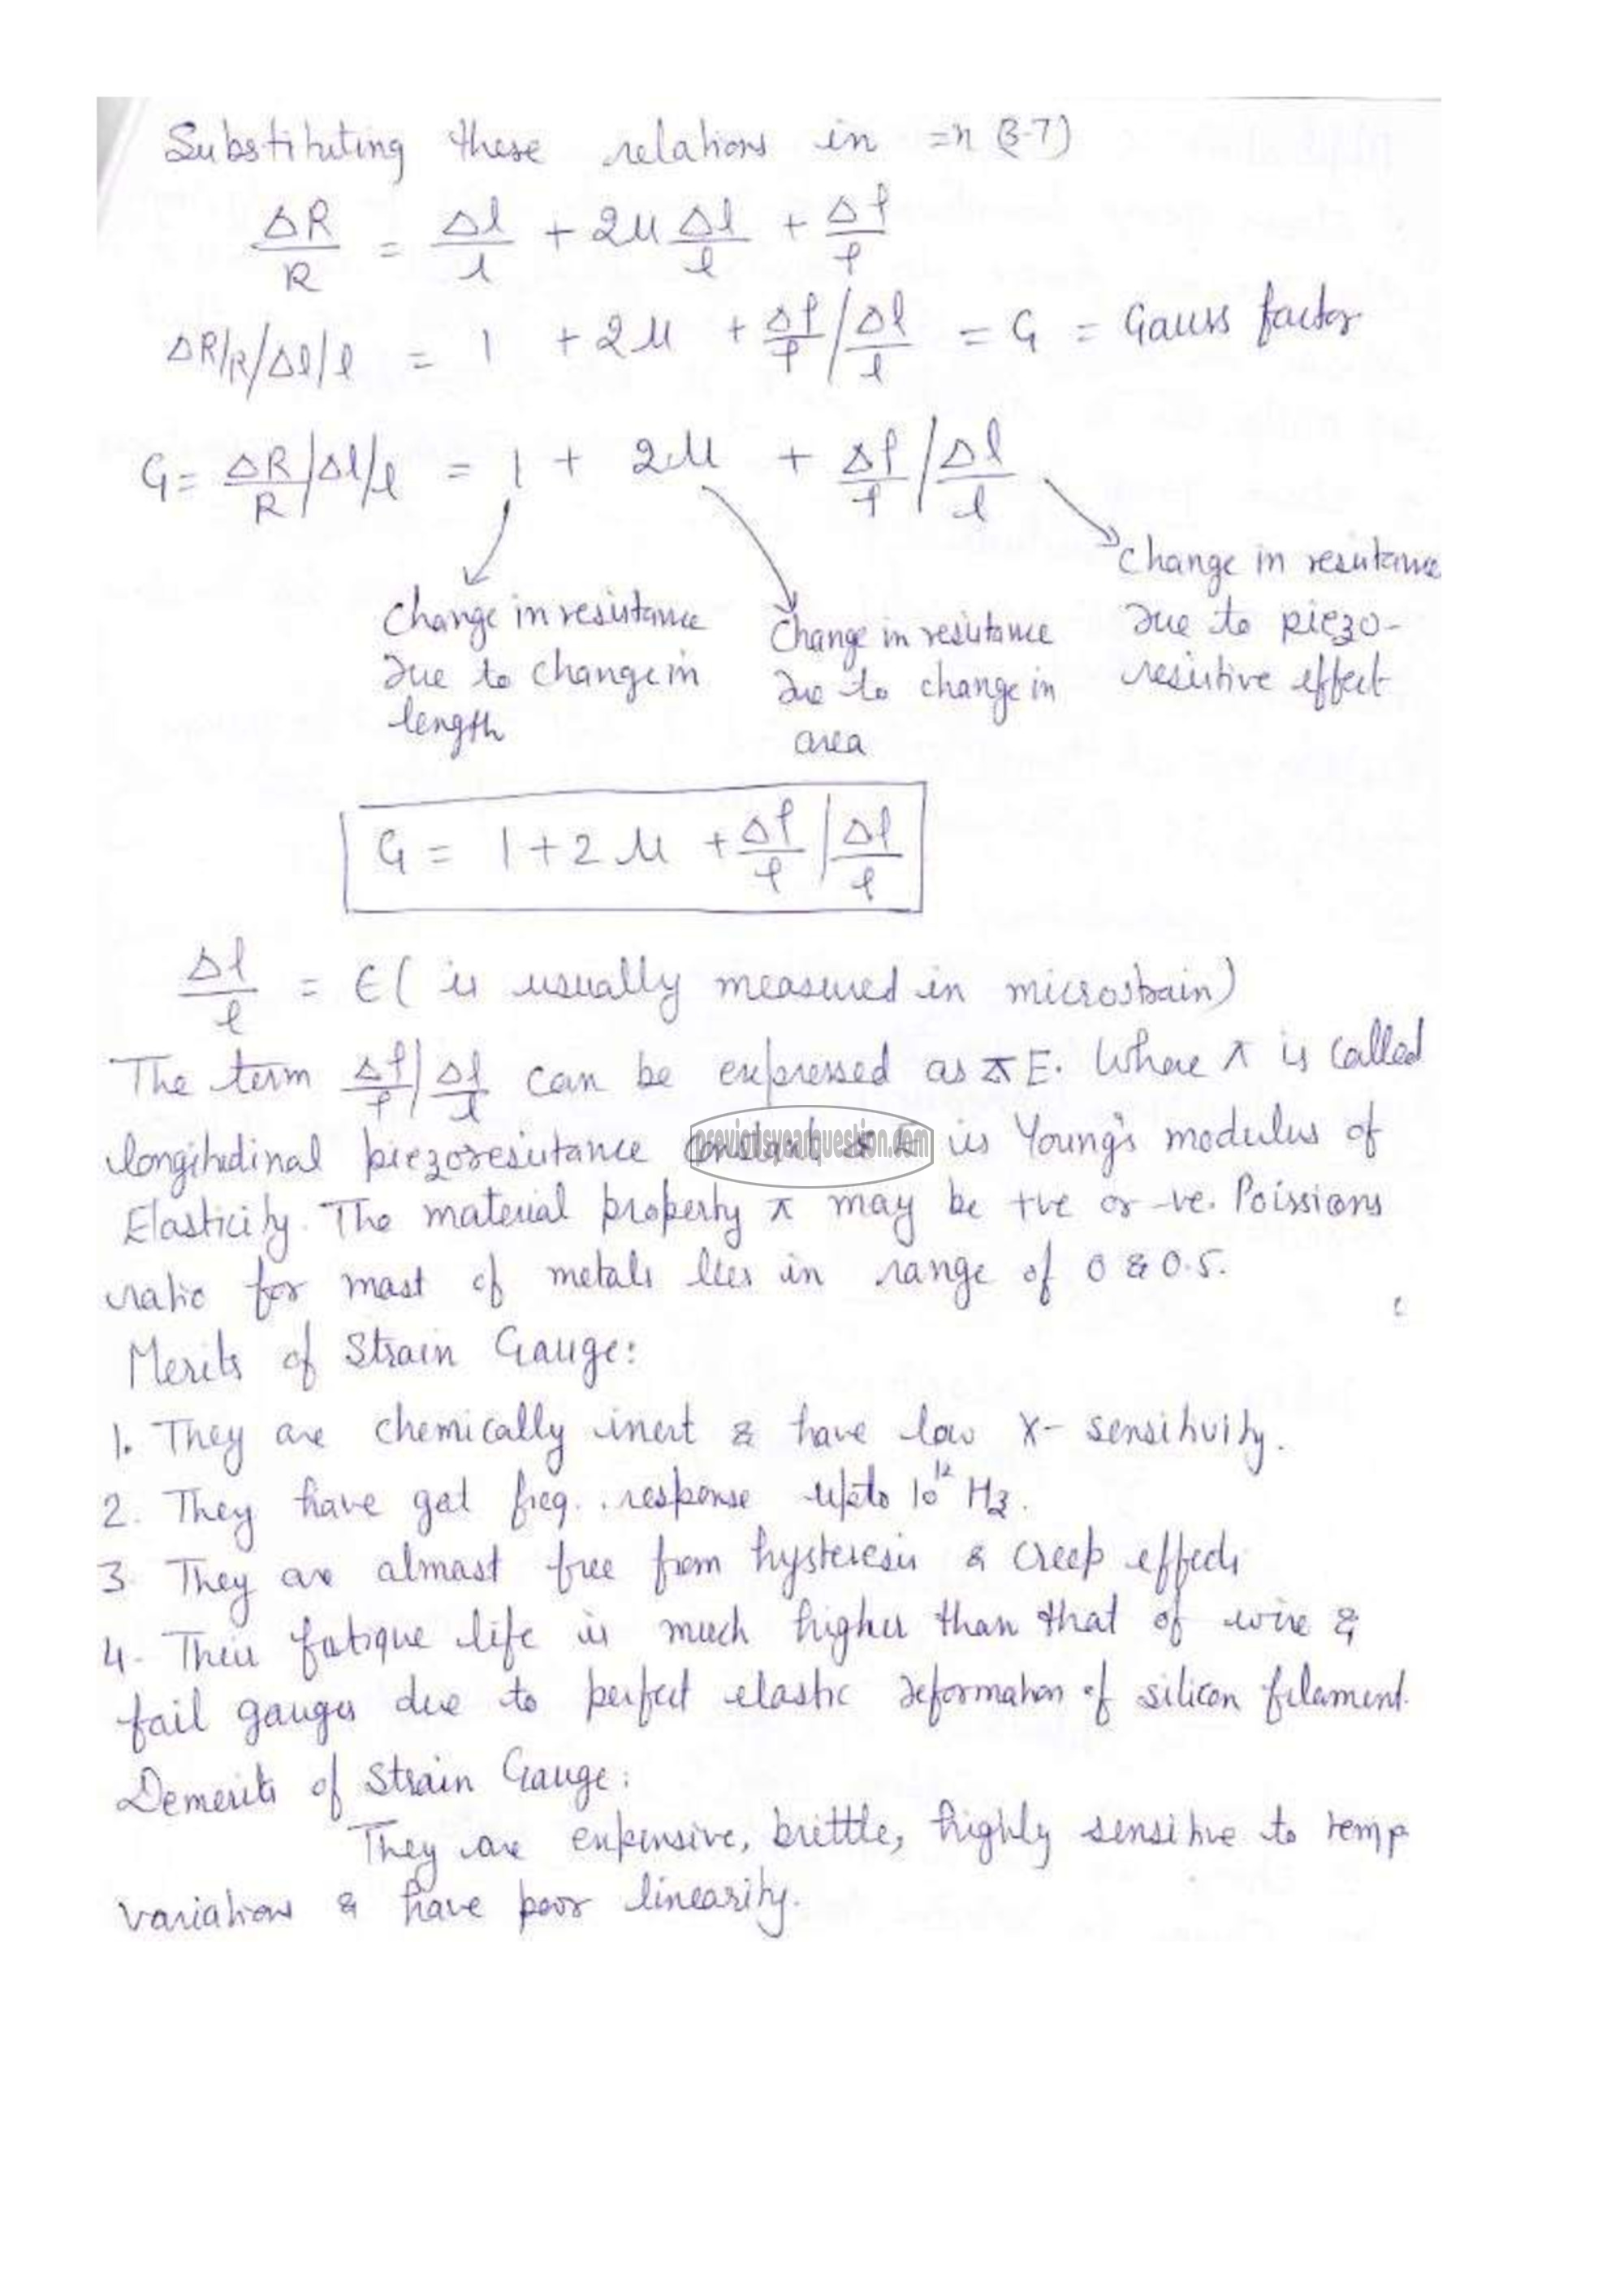 Substituting these relations in =n (3.7)
ΔR/R = Δl/l + 2μ Δl/l + Δρ/ρ
ΔR/R/Δl/l = 1 + 2μ + Δρ/ρ / Δl/l = G = Gauss factor
G = ΔR/R / Δl/l = 1 + 2μ + Δρ/ρ / Δl/l
Change in resistance due to change in length
Change in resistance due to change in area
Change in resistance due to piezo-resistive effect
G = 1+2μ + Δρ/ρ / Δl/l
Δl/l = ε ( is usually measured in microstrain)
The term Δρ/ρ / Δl/l can be expressed as πE. Where π is called
longitudinal piezoresistance constant & E is Young's modulus of
previousyearquestion.com
Elasticity. The material property π may be +ve or -ve. Poissions
ratio for most of metals lies in range of 0 & 0.5.
Merits of Strain Gauge:
1. They are chemically inert & have low X- sensitivity.
2. They have got freq. response upto 10¹² Hz.
3. They are almost free from hysteresis & creep effects
4. Their fatigue life is much higher than that of wire &
foil gauges due to perfect elastic deformation of silicon filament.
Demerits of Strain Gauge:
They are expensive, brittle, highly sensitive to temp
variations & have poor linearity.